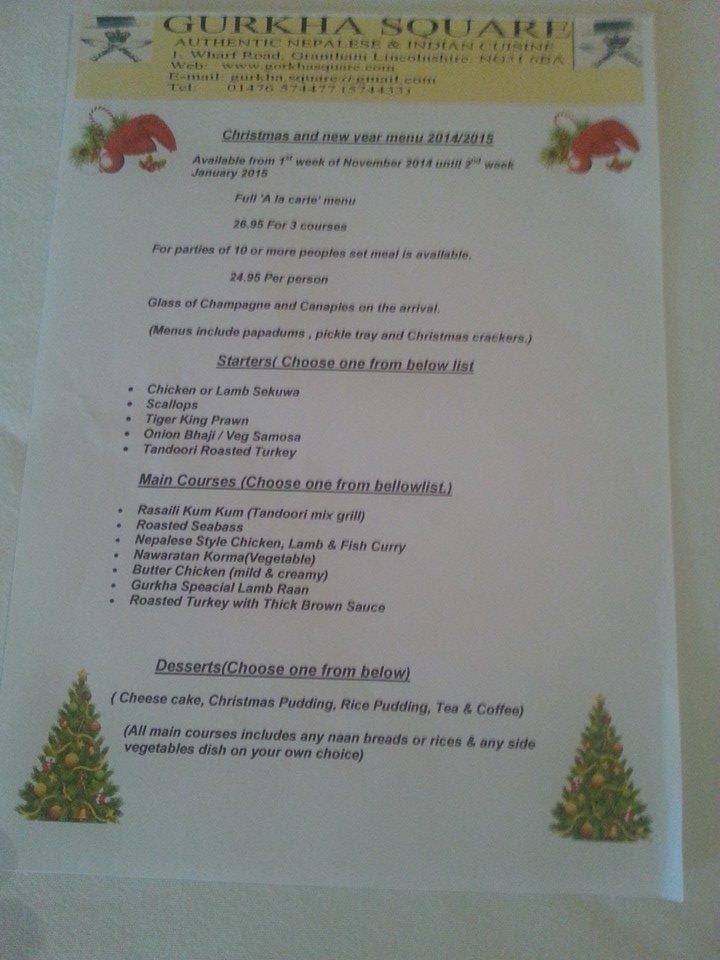 GURKHA SQUARE
AUTHENTIC NEPALESE & INDIAN CUISINE
1, Wharf Road, Grantham Lincolnshire, NG31 6BA
Web: www.gorkhasquare.com
E-mail: gurkha.square@gmail.com
Tel: 01476 574477 (574433)
Christmas and new year menu 2014/2015
Available from 1st week of November 2014 until 2nd week
January 2015
Full 'A la carte' menu
26.95 For 3 courses
For parties of 10 or more peoples set meal is available.
24.95 Per person
Glass of Champagne and Canapies on the arrival.
(Menus include papadums , pickle tray and Christmas crackers.)
Starters( Choose one from below list
• Chicken or Lamb Sekuwa
• Scallops
• Tiger King Prawn
• Onion Bhaji / Veg Samosa
• Tandoori Roasted Turkey
Main Courses (Choose one from bellowlist.)
• Rasaili Kum Kum (Tandoori mix grill)
• Roasted Seabass
• Nepalese Style Chicken, Lamb & Fish Curry
• Nawaratan Korma(Vegetable)
• Butter Chicken (mild & creamy)
• Gurkha Speacial Lamb Raan
• Roasted Turkey with Thick Brown Sauce
Desserts(Choose one from below)
( Cheese cake, Christmas Pudding, Rice Pudding, Tea & Coffee)
(All main courses includes any naan breads or rices & any side
vegetables dish on your own choice)